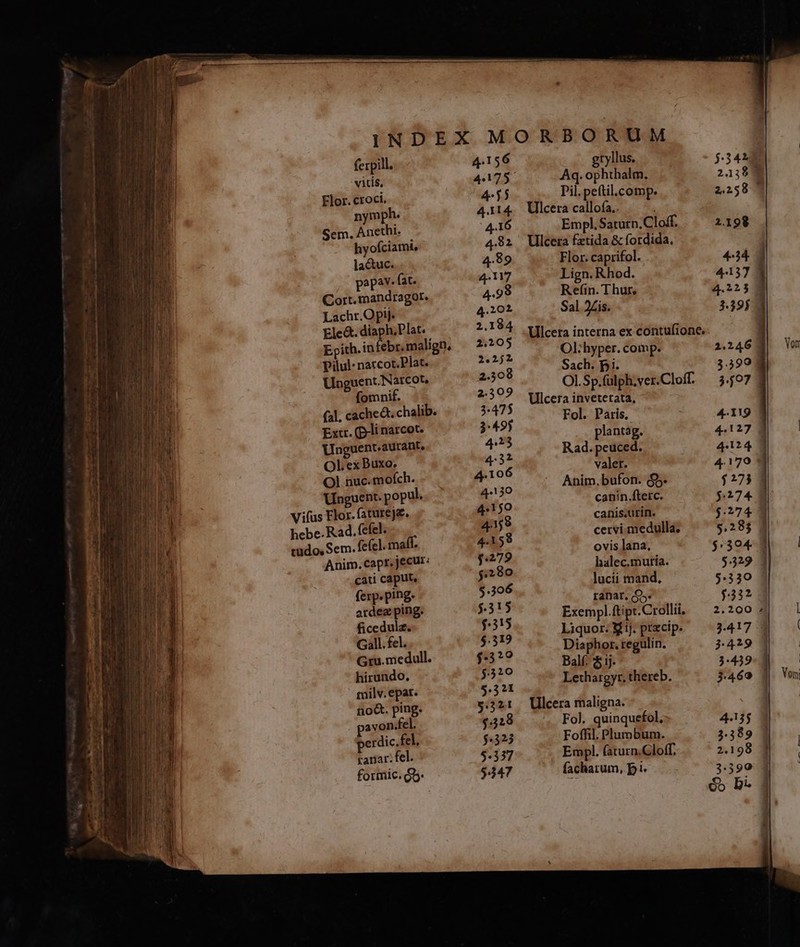 INDEX MORBORUM
ſerpill. 4.156
vitis, 4.175
Flor. croci. 4.55
nymph. 4.114
Sem. Anethi. 4.16
hyoſciami, 4.82
lactuc. 4.89
papav. ſat. 4.117
Cort. mandragor. 4.98
Lachr. Opij. 4.202
Elect. diaph. Plat. 2.184
Epith. in febr. malign, 2.205
Pilul. narcot. Plat. 2.252
Unguent. Narcot. 2.308
ſomnif. 2.309
ſal. cachect. chalib. 3.475
Extr. ☿li narcot. 3.495
Unguent. aurant. 4.23
Ol. ex Buxo. 4.32
Ol nuc. moſch. 4.106
Unguent. popul. 4.130
Viſus Flor. ſaturejæ. 4.150
hebe- Rad. ſeſel. 4.158
tudo, Sem. ſeſel. maſſ. 4.158
Anim. capr. jecur. 5.279
cati caput, 5.280
ſerp. ping. 5.306
ardeæ ping. 5.315
ficedulæ. 5.315
Gall. fel. 5.319
Gru. medull. 5.320
hirundo. 5.320
milv. epar. 5.321
noct. ping. 5.321
pavon. fel. 5.328
perdic. fel. 5.323
ranar. fel. 5.337
formic. 5.347
gryllus. 5.342
Aq. ophthalm. 2.138
Pil. peſtil. comp. 2.258
Ulcera calloſa,
Empl. Saturn. Cloſſ. 2.198
Ulcera fætida & ſordida,
Flor. caprifol. 4.34
Lign. Rhod. 4.137
Reſin. Thur. 4.223
Sal ♃is. 3.395
Ulcera interna ex contuſione.
Ol. hyper. comp. 2.246
Sach. ♄i. 3.390
Ol. Sp. ſulph. ver. Cloſſ. 3.507
Ulcera inveterata,
Fol. Paris. 4.119
plantag. 4.127
Rad. peuced. 4.124
valer. 4.170
Anim. bufon. 5.273
canin. ſterc. 5.274
canis. urin. 5.274
cervi medulla. 5.283
ovis lana, 5.304
halec. muria. 5.329
lucii mand. 5.330
ranar. 5.332
Exempl. ſtipt. Crollii. 2.200
Liquor. ☿ij. præcip. 3.417
Diaphor. regulin. 3.429
Balſ. ♁ij. 3.439
Lethargyr. thereb. 3.460
Ulcera maligna.
Fol. quinquefol. 4.135
Foſſil. Plumbum. 3.389
Empl. ſaturn. Cloſſ. 2.198
ſacharum, ♄i. 3.390
♄i.